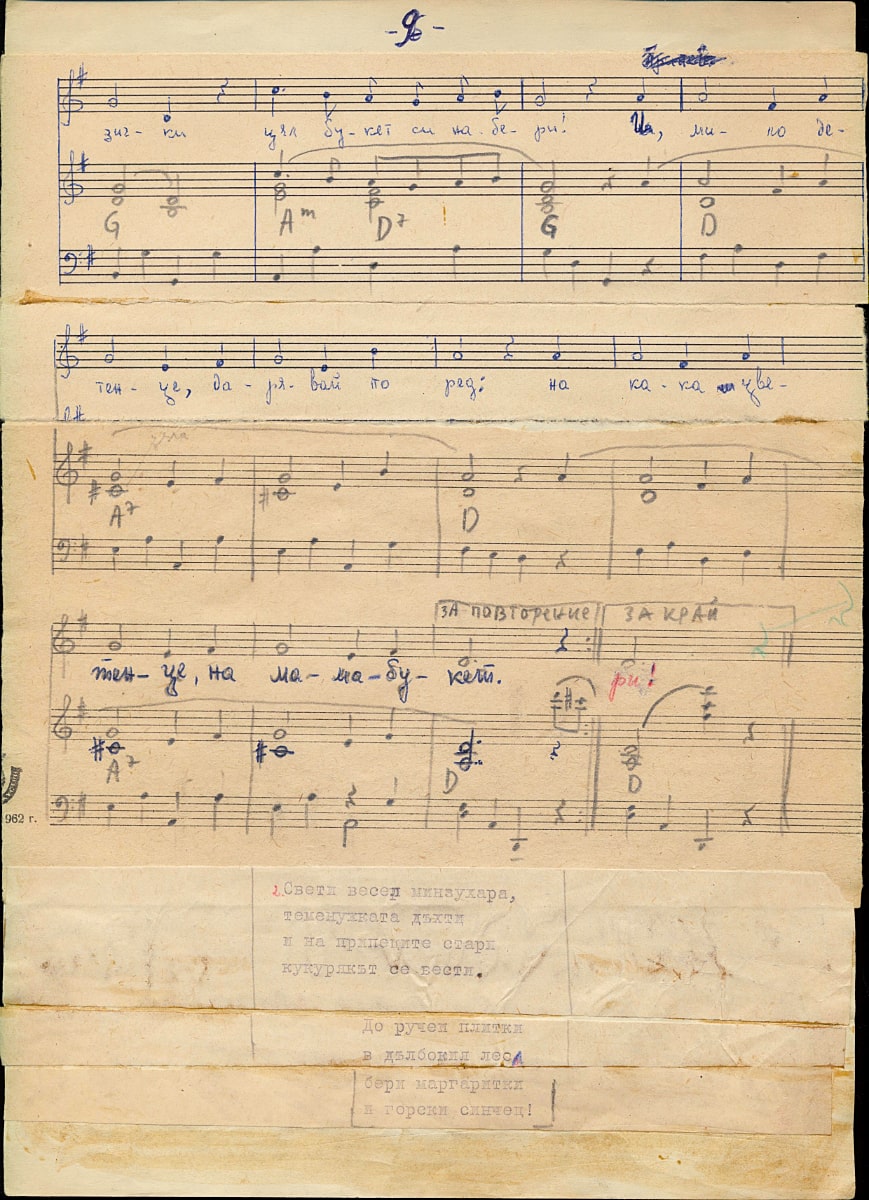 - 9 -
зич- ки цял бу- кет си на- бе- ри! На, ми- ло де-
G Am D7 G D
тен- це, да- ря- вай по ред: на ка- ка цве-
A7 D
ЗА ПОВТОРЕНИЕ ЗА КРАЙ
тен- це, на ма- ма- бу- кет. ри!
A7 D D
962 г.
2. Свети весел минзухара,
теменужката дъхти
и на припеците стари
кукурякът се вести.
До ручеи плитки
в дълбокия леса
бери маргаритки
и горски синчец!